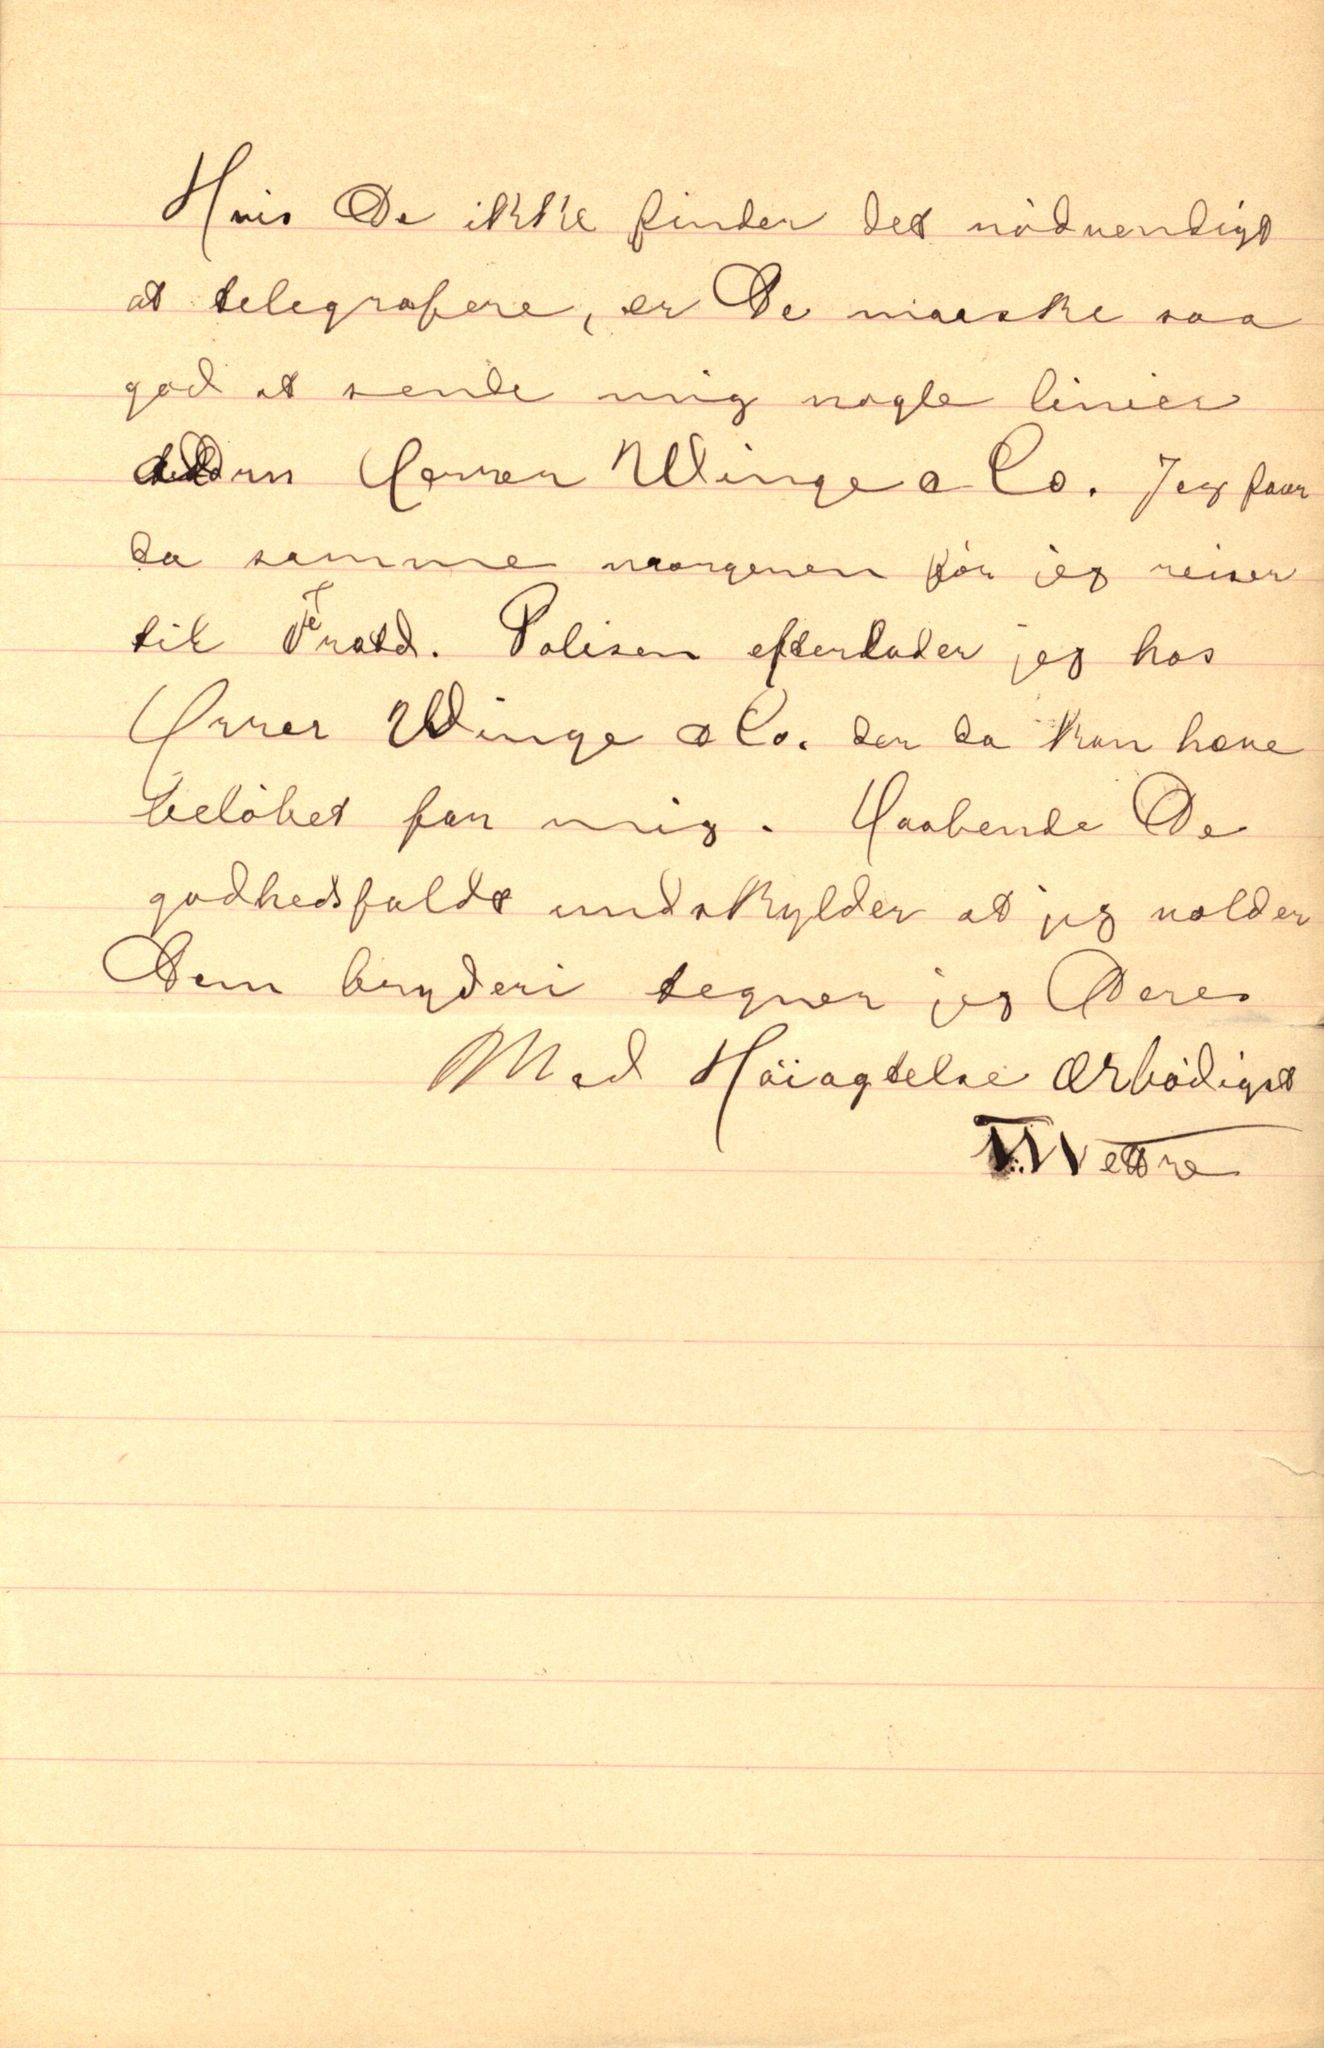 Hvis De ikke finder det nødvendigt
at telegrafere, er De maaske saa
god at sende mig nogle linier
Herrer Winge & Co. Jeg faar
da samme morgenen før jeg reiser
til Polisen efterlader jeg hos
Herrer Winge & Co. der da kan hæve
beløbet for mig. Haabende De
godhedsfuldt undskylder at jeg volder
Dem bryderi tegner jeg Deres
Med Høiagtelse ærbødigst
Wettre